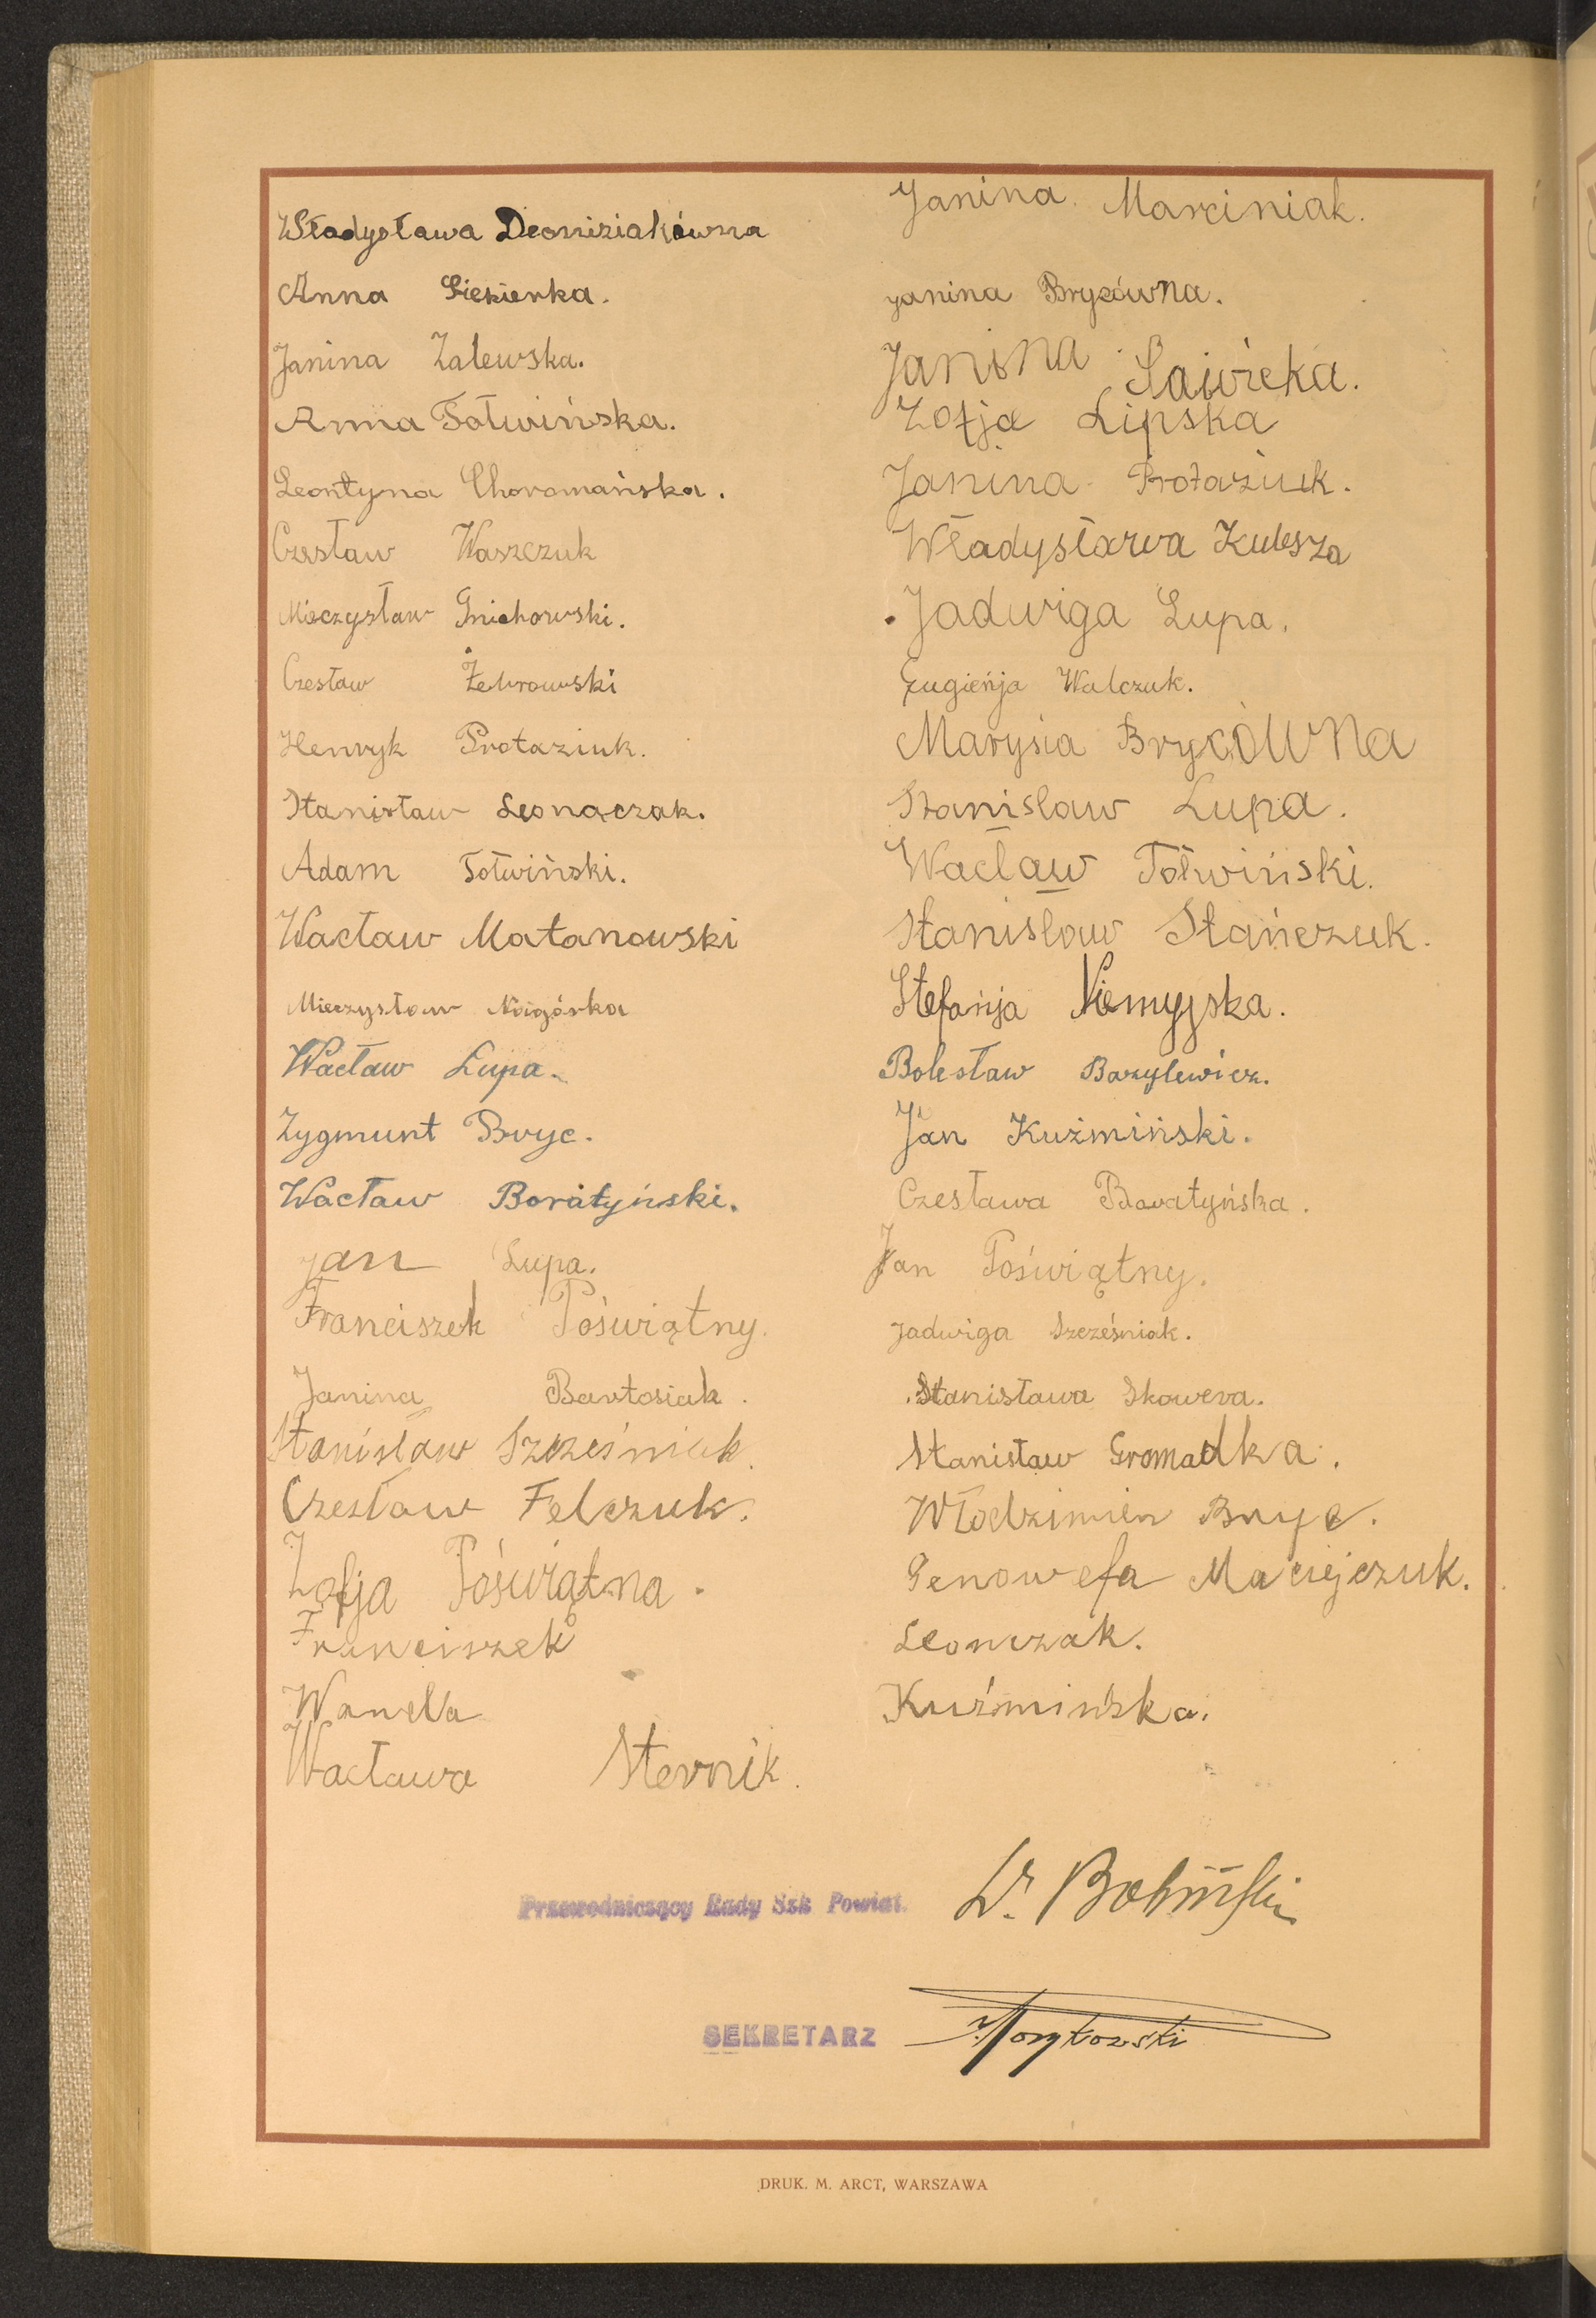 Władysława Deoniziakówna
Anna Siekierka.
Janina Zalewska.
Anna Tołwińska.
Leontyna Choromańska.
Czesław Waszczuk
Mieczysław Gnichowski.
Czesław Żebrowski
Henryk Protaziuk.
Stanisław Leonaczak.
Adam Tołwiński.
Wacław Matanowski
Mieczysław
Wacław Łupa.
Zygmunt Bryc.
Wacław Boratyński.
Jan Łupa.
Franciszek Poświątny.
Janina Bartosiak.
Stanisław Szcześniak.
Czesław Felczuk.
Zofja Poświątna.
Franciszek Leonczak.
Wanda Kuźmińska.
Wacława Sternik.
Janina Marciniak.
Janina Brycówna.
Janina Sawicka.
Zofja Lipska
Janina Protaziuk.
Władysława Kulesza
Jadwiga Łupa.
Eugienja Walczuk.
Marysia Brycówna
Stanisław Łupa.
Wacław Tołwiński.
Stanisław Stańczuk.
Stefanja Niemyjska.
Bolesław Bazylewicz.
Jan Kuźmiński.
Czesława Boratyńska.
Jan Poświątny.
Jadwiga Szcześniak.
Stanisława Skowera.
Stanisław Gromadka.
Włodzimierz Bryc.
Genowefa Maciejczuk.
Przewodniczący Rady Szk Powiat.
SEKRETARZ
DRUK. M. ARCT, WARSZAWA